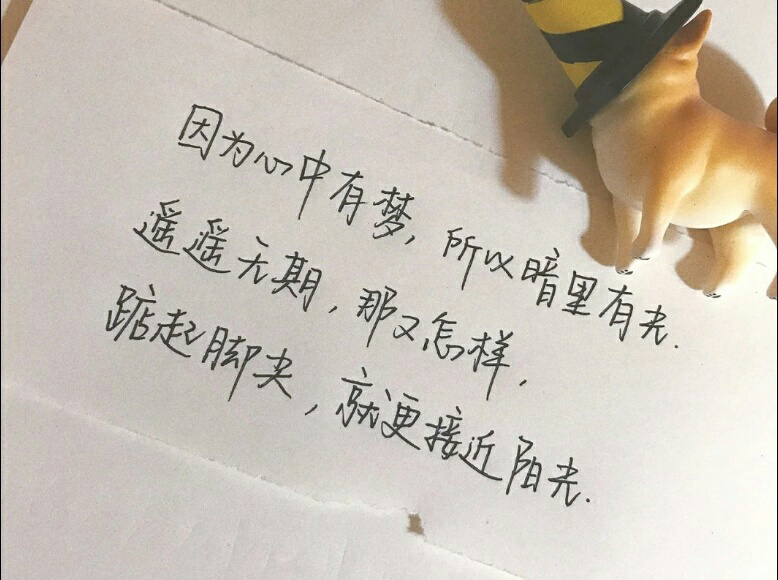 因为心中有梦，所以暗里有光.
遥遥无期，那又怎样，
踮起脚尖，就更接近阳光.